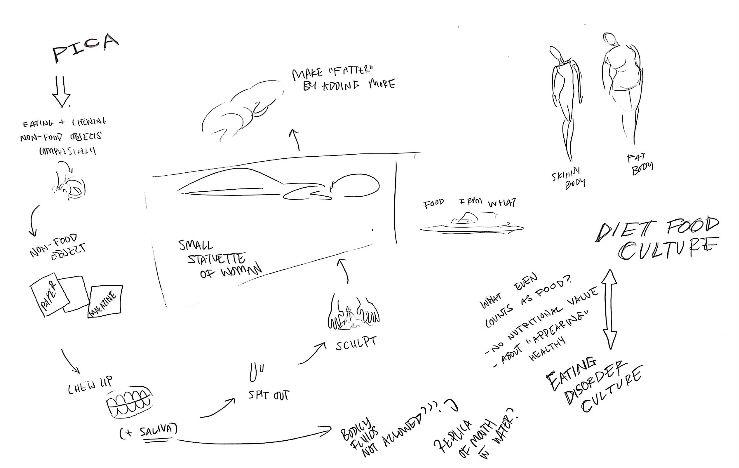 PICA
EATING + CHEWING
NON-FOOD OBJECTS
COMPULSIVELY
NON-FOOD
OBJECT
PAPER
MAGAZINE
CHEW UP
(+ SALIVA)
SPIT OUT
SCULPT
SMALL
STATUETTE
OF WOMAN
MAKE "FATTER"
BY ADDING MORE
FOOD FROM WHAT
SKINNY
BODY
FAT
BODY
DIET FOOD
CULTURE
WHAT EVEN
COUNTS AS FOOD?
- NO NUTRITIONAL VALUE
- ABOUT "APPEARING"
HEALTHY
EATING
DISORDER
CULTURE
BODILY
FLUIDS
NOT ALLOWED???
REPLICA
OF MOUTH
IN WATER?